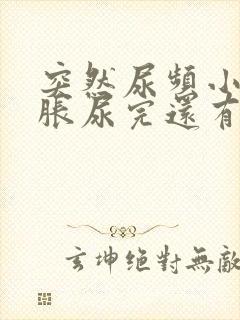 突然尿頻小
脹尿完還有
玄坤絕對無敵